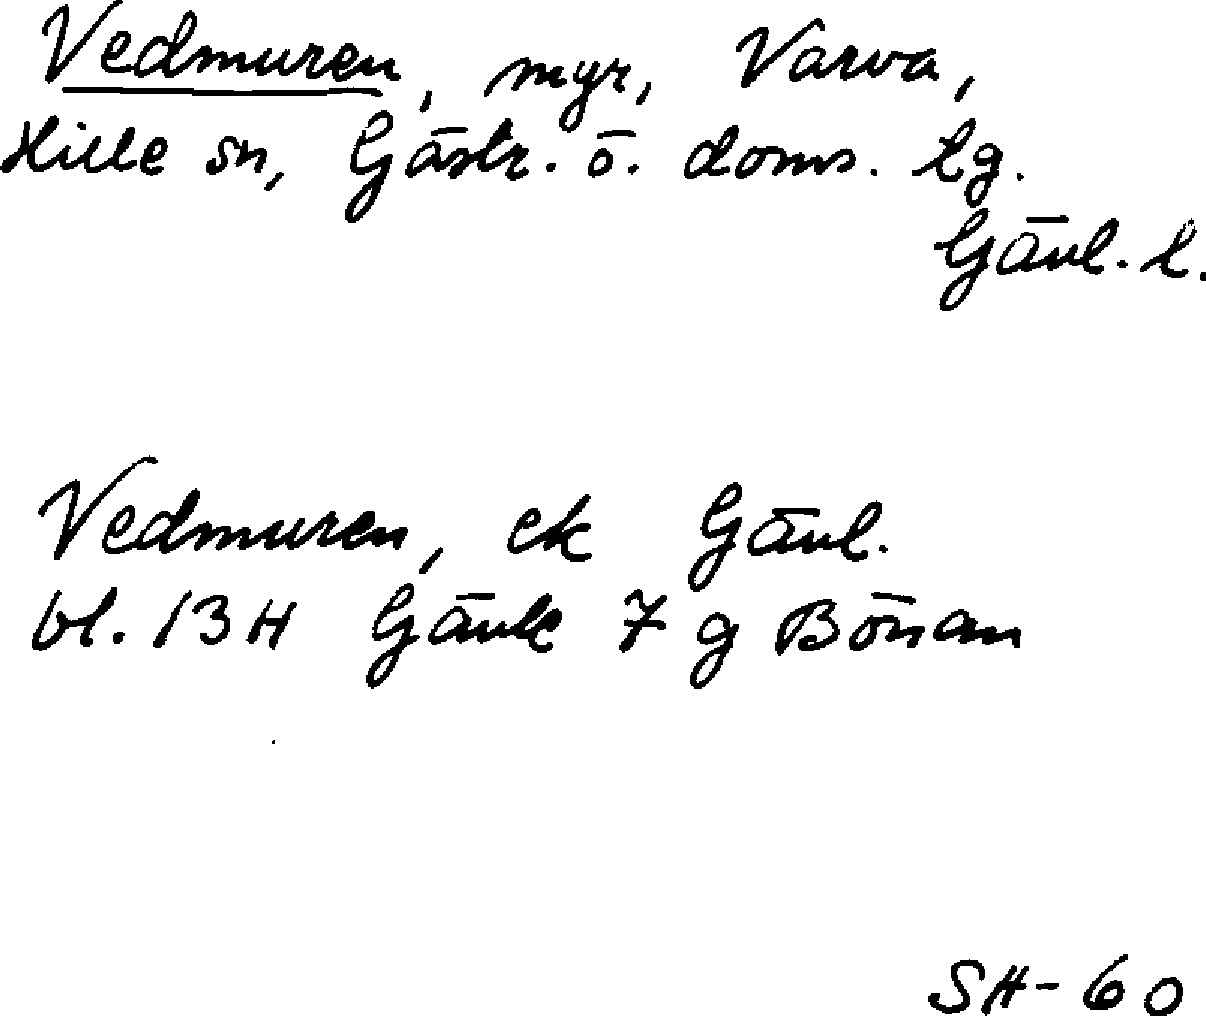 Vedmuren, myr, Varva,
Hille sn, Gästr. ö. doms. lg.
Gävl. l.
Vedmuren, ek Gävl.
bl. 13 H Gävle 7 g Bönan
SH-60